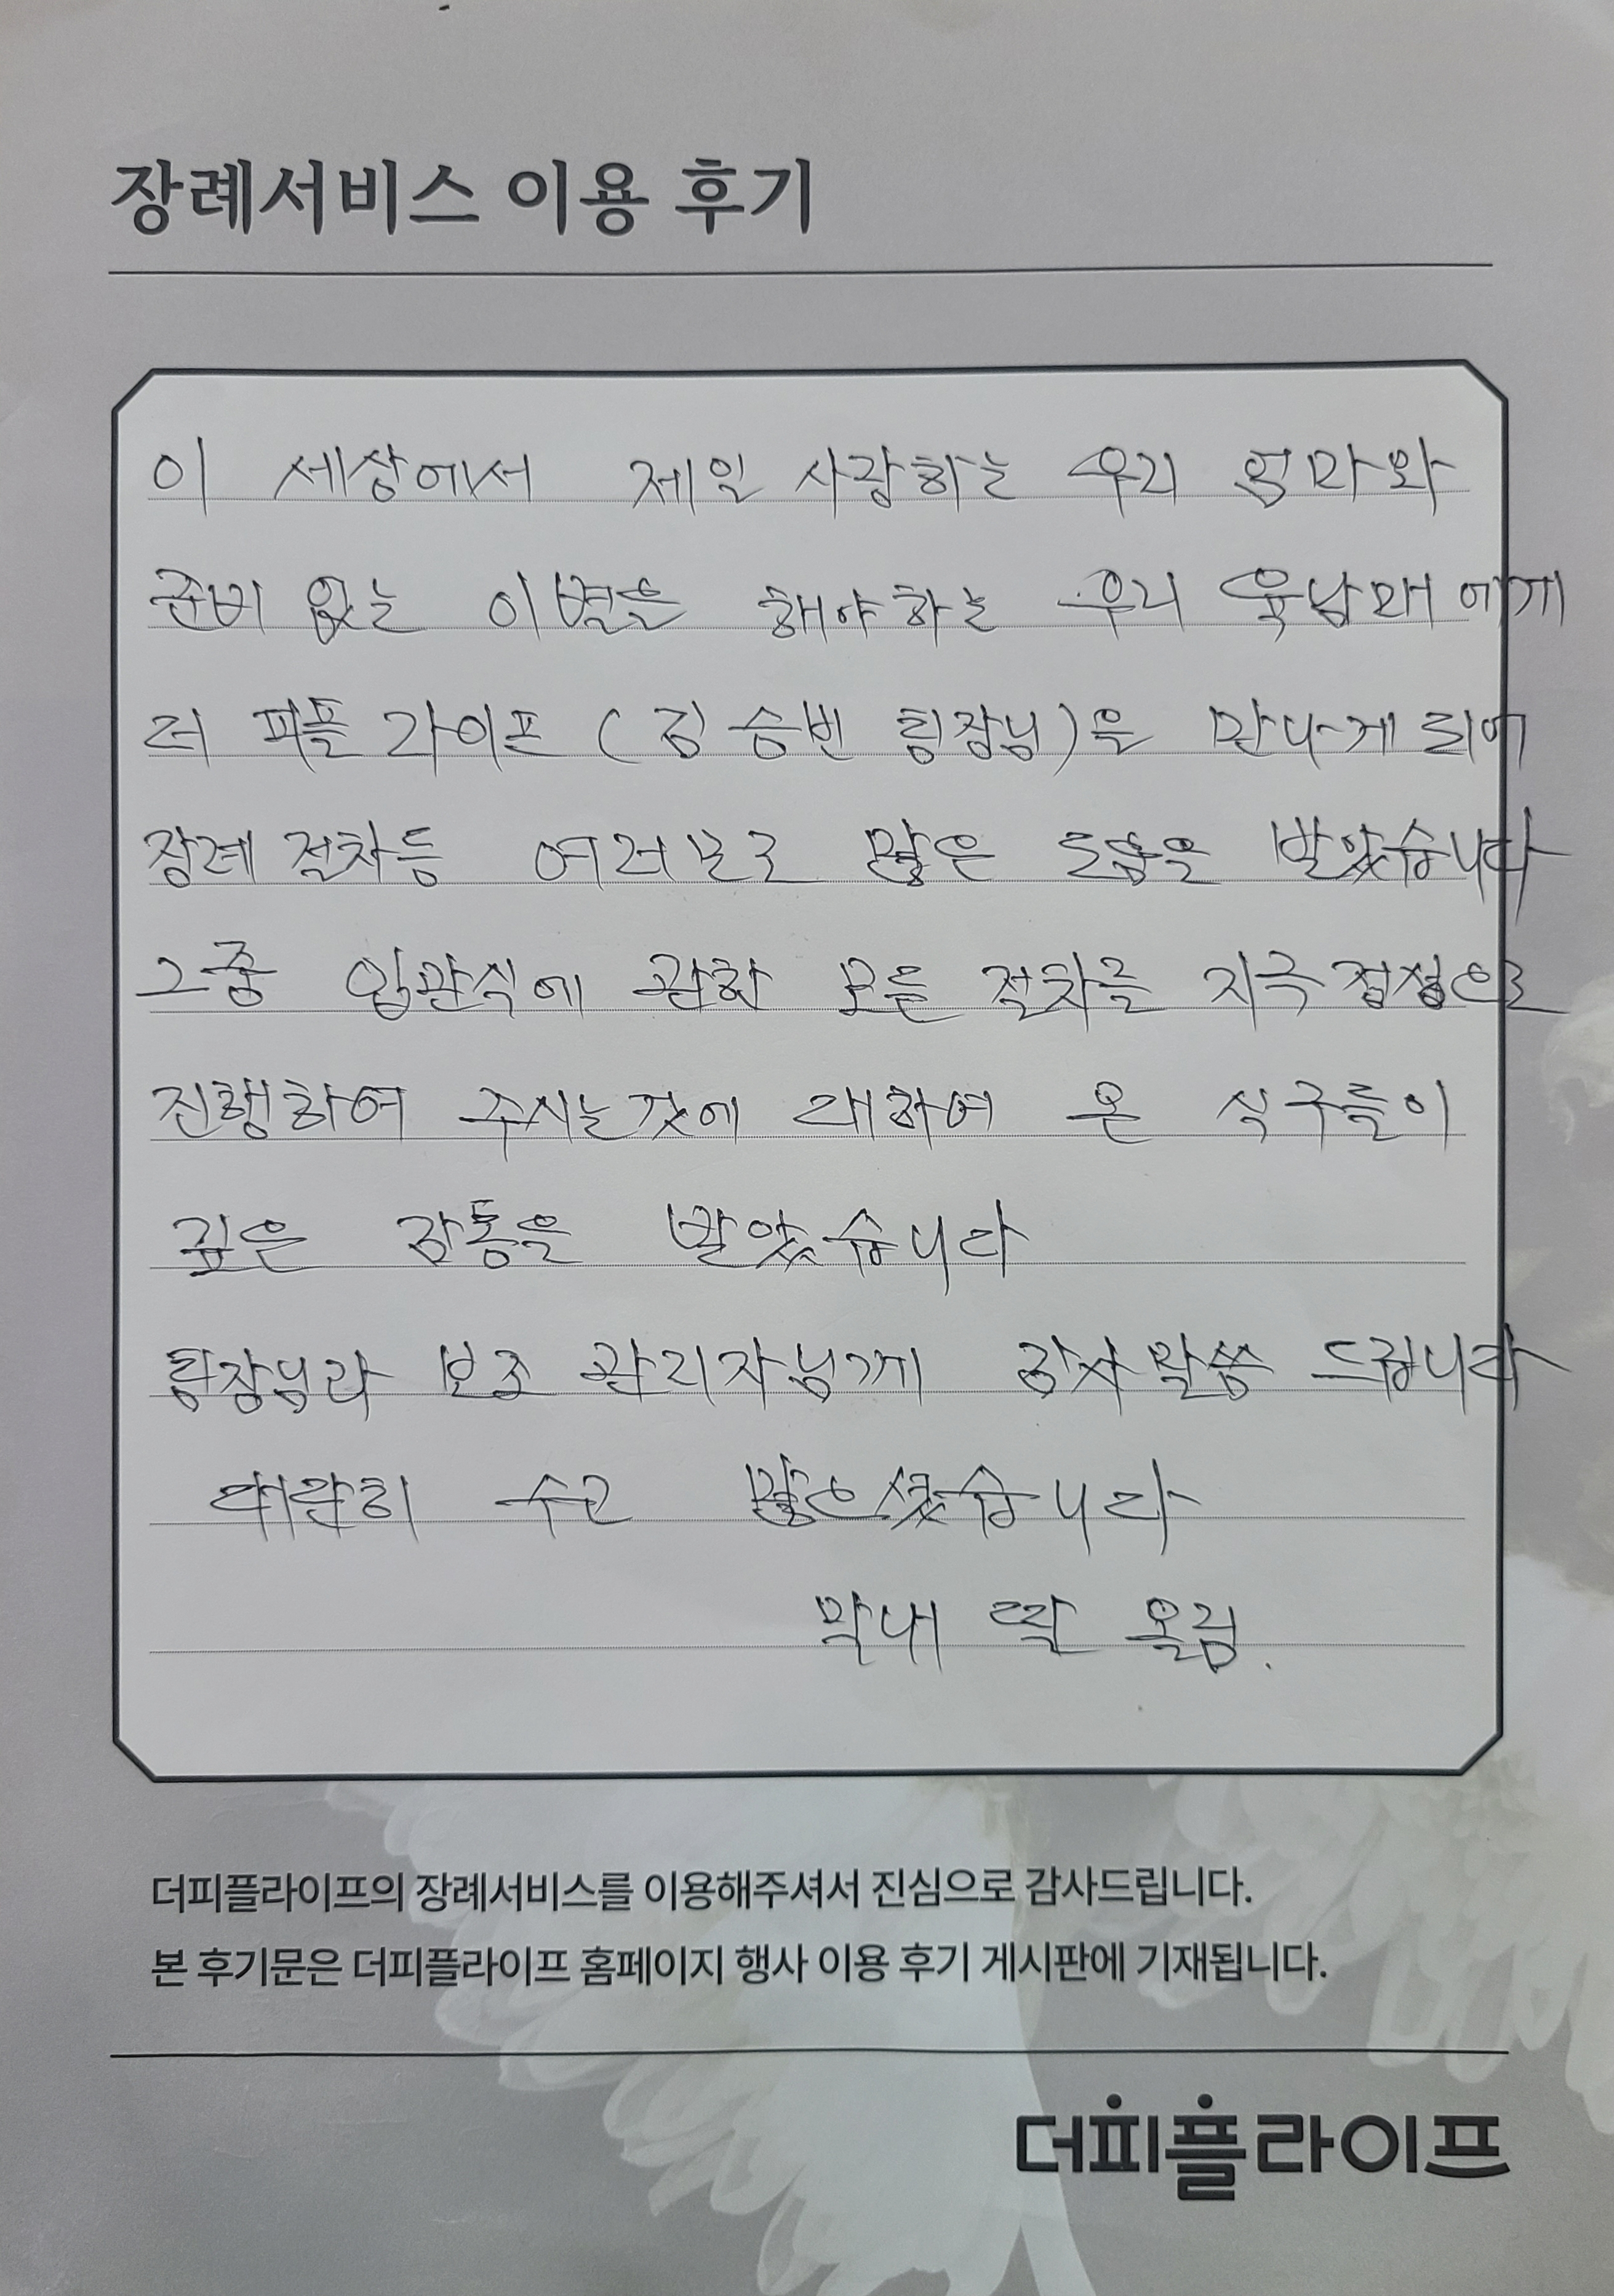 장례서비스 이용 후기
이 세상에서 제일 사랑하는 우리 엄마와
준비 없는 이별을 해야하는 우리 육남매에게
더 피플 라이프 (김승빈 팀장님)은 만나게 되어
장례 절차등 여러보로 많은 도움을 받았습니다
그중 입관식에 관한 모든 절차를 지극정성으로
진행하여 주시는것에 대하여 온 식구들이
깊은 감동을 받았습니다
팀장님과 보조 관리자님께 감사말씀 드립니다
대단히 수고 많으셨습니다
막내 딸 올림.
더피플라이프의 장례서비스를 이용해주셔서 진심으로 감사드립니다.
본 후기문은 더피플라이프 홈페이지 행사 이용 후기 게시판에 기재됩니다.
더피플라이프